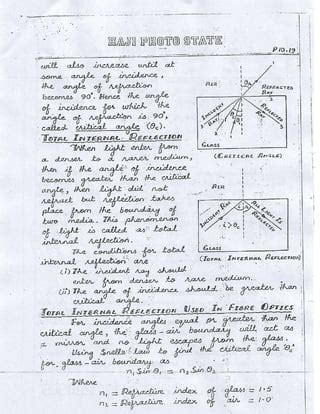 HAJI PHOTO STATE
P 10.19
will also increase until at
some angle of incidence,
the angle of refraction
becomes 90°. Hence the angle
of incidence for which the
angle of refraction is 90°,
called critical angle (θc).
AIR
REFRACTED RAY
INCIDENT RAY
REFLECTED RAY
GLASS
(CRITICAL ANGLE)
TOTAL INTERNAL REFLECTION
When light enter from
a denser to a rarer medium,
then if the angle of incidence
becomes greater than the critical
angle, then light did not
refract but reflection takes
place from the boundary of
two media. This phenomenon
of light is called as total
internal reflection.
AIR
INCIDENT RAY
REFLECTED
GLASS
(TOTAL INTERNAL REFLECTION)
The conditions for total
internal reflection are
(i) The incident ray should
enter from denser to rare medium.
(ii) The angle of incidence should be greater than
critical angle.
TOTAL INTERNAL REFLECTION USED IN FIBRE OPTICS
For incidence angles equal or greater than the
critical angle, the glass-air boundary will act as
a mirror and no light escapes from the glass.
Using Snell's law to find the critical angle 'θc'
for glass-air boundary as
n₁ Sin θ₁ = n₂ Sin θ₂
Where
n₁ = Refractive index of glass = 1.5
n₂ = Refractive index of air = 1.0